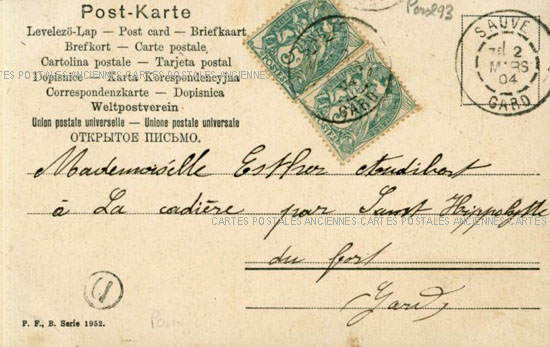 Post-Karte
Perso93
Levelező-Lap — Post card — Briefkaart
Brefkort — Carte postale
Cartolina postale — Tarjeta postal
Dopisnice — Karta Korrespondencyjna
Correspondenzkarte — Dopisnica
Weltpostverein
Union postale universelle — Unione postale universale
ОТКРЫТОЕ ПИСЬМО.
SAUVE
2
MARS
04
GARD
GARD
CARTES POSTALES ANCIENNES CARTES POSTALES ANCIENNES CARTES POSTALES ANCIENNES
Mademoiselle Esther Audibert
à La cadière par Saint Hippolyte
CARTES POSTALES ANCIENNES CARTES POSTALES ANCIENNES CARTES POSTALES ANCIENNES
du fort
Gard
P. F., B. Serie 1952.